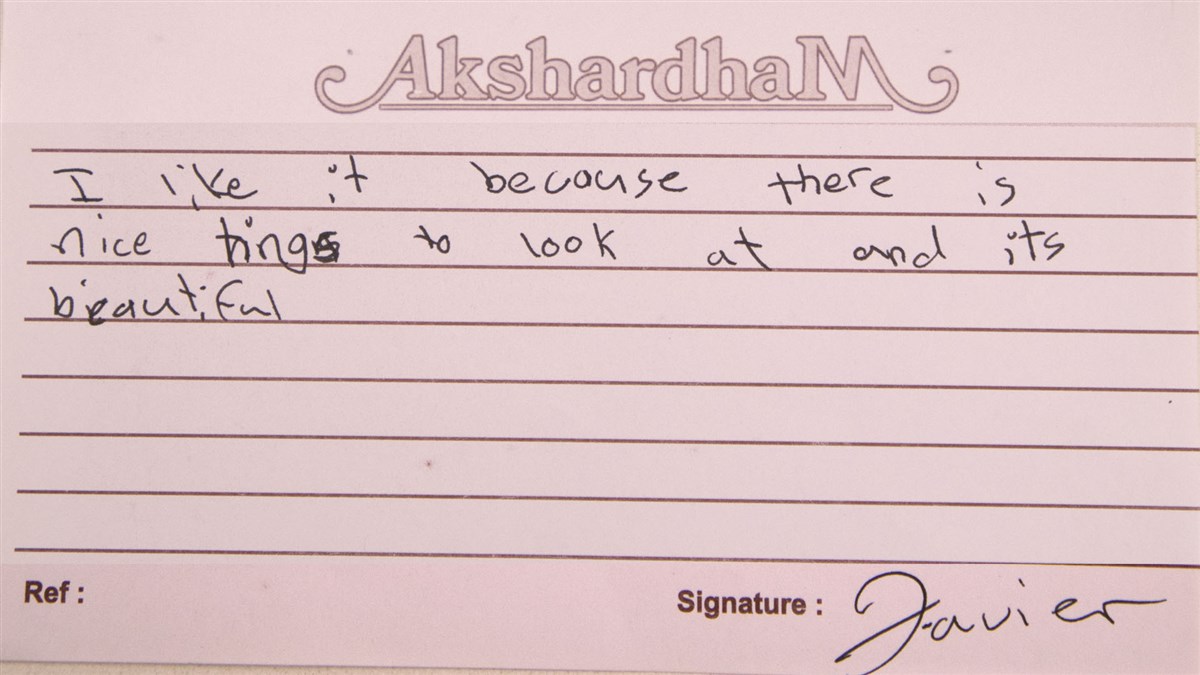 AkshardhaM
I like it becouse there is
nice tings to look at and its
beautiful
Ref :
Signature : Javier